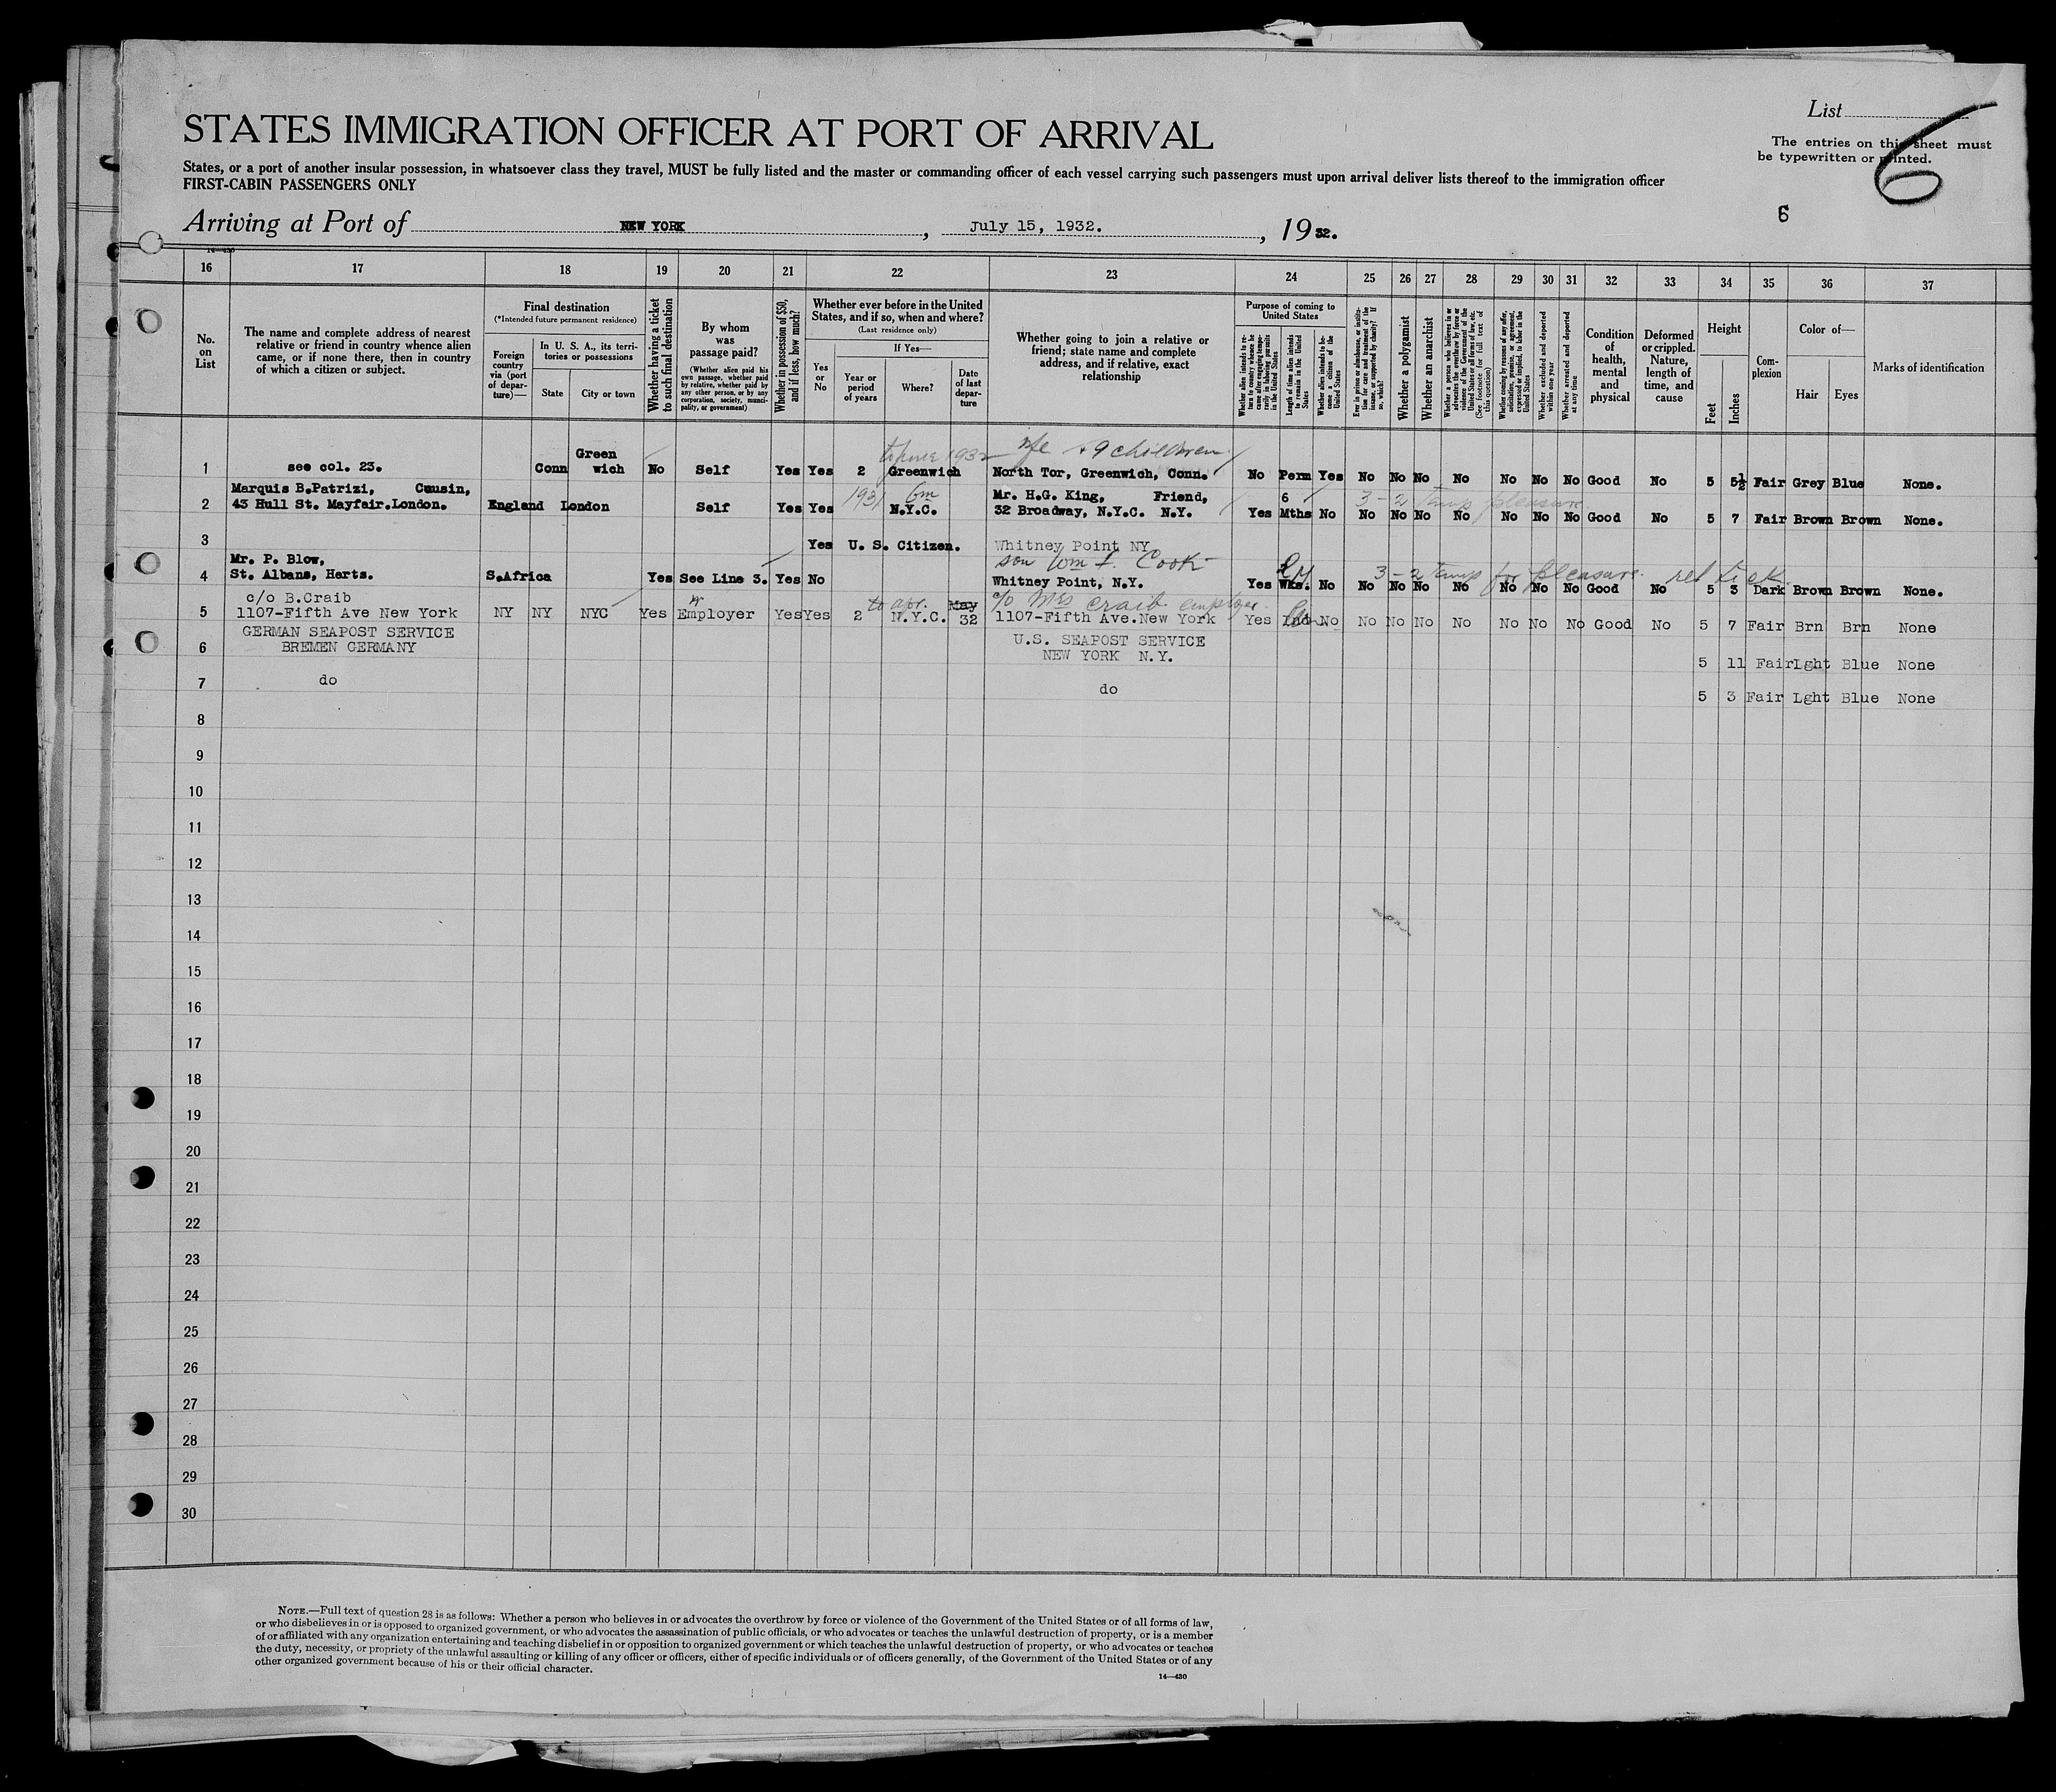 List
6
The entries on this sheet must
be typewritten or printed.
STATES IMMIGRATION OFFICER AT PORT OF ARRIVAL
States, or a port of another insular possession, in whatsoever class they travel, MUST be fully listed and the master or commanding officer of each vessel carrying such passengers must upon arrival deliver lists thereof to the immigration officer
FIRST-CABIN PASSENGERS ONLY
6
Arriving at Port of NEW YORK, July 15, 1932., 19 32.
14—430
16 17 18 19 20 21 22 23 24 25 26 27 28 29 30 31 32 33 34 35 36 37
No. on List
The name and complete address of nearest relative or friend in country whence alien came, or if none there, then in country of which a citizen or subject.
Final destination
(*Intended future permanent residence)
Foreign country via (port of departure)—
In U. S. A., its territories or possessions
State
City or town
Whether having a ticket to such final destination
By whom was passage paid?
(Whether alien paid his own passage, whether paid by relative, whether paid by any other person, or by any corporation, society, municipality, or government)
Whether in possession of $50, and if less, how much?
Whether ever before in the United States, and if so, when and where?
(Last residence only)
Yes or No
If Yes—
Year or period of years
Where?
Date of last departure
Whether going to join a relative or friend; state name and complete address, and if relative, exact relationship
Purpose of coming to United States
Whether alien intends to return to country whence he came after engaging temporarily in laboring pursuits in the United States
Length of time alien intends to remain in the United States
Whether alien intends to become a citizen of the United States
Ever in prison or almshouse, or institution for care and treatment of the insane, or supported by charity? If so, which?
Whether a polygamist
Whether an anarchist
Whether a person who believes in or advocates the overthrow by force or violence of the Government of the United States or all forms of law, etc. (See footnote for full text of this question)
Whether coming by reasons of any offer, solicitation, promise, or agreement, expressed or implied, to labor in the United States
Whether excluded and deported within one year
Whether arrested and deported at any time
Condition of health, mental and physical
Deformed or crippled. Nature, length of time, and cause
Height
Feet
Inches
Complexion
Color of—
Hair
Eyes
Marks of identification
wife + 9 children
1 see col. 23. Conn Green wich No Self Yes Yes 2 Greenwich 1932 North Tor, Greenwich, Conn. No Perm Yes No No No No No No No Good No 5 5½ Fair Grey Blue None.
Marquis B.Patrizi, Cousin, 1931 6m Mr. H.G. King, Friend, 6 3-2 temp pleasure
2 43 Hull St. Mayfair.London. England London Self Yes Yes N.Y.C. 32 Broadway, N.Y.C. N.Y. Yes Mths No No No No No No No No Good No 5 7 Fair Brown Brown None.
3 Yes U. S. Citizen. Whitney Point NY
Mr. P. Blow, son Wm F. Cook 2 M 3-2 temp for pleasure. ret tick
4 St. Albans, Herts. S.Africa Yes See Line 3. Yes No Whitney Point, N.Y. Yes Wks. No No No No No No No No Good No 5 3 Dark Brown Brown None.
c/o B.Craib to apr. May c/o Mrs Craib employer
5 1107-Fifth Ave New York NY NY NYC Yes Employer Yes Yes 2 N.Y.C. 32 1107-Fifth Ave.New York Yes Ind No No No No No No No No Good No 5 7 Fair Brn Brn None
GERMAN SEAPOST SERVICE U.S. SEAPOST SERVICE
6 BREMEN GERMANY NEW YORK N.Y. 5 11 Fair Lght Blue None
7 do do 5 3 Fair Lght Blue None
8
9
10
11
12
13
14
15
16
17
18
19
20
21
22
23
24
25
26
27
28
29
30
NOTE.—Full text of question 28 is as follows: Whether a person who believes in or advocates the overthrow by force or violence of the Government of the United States or of all forms of law,
or who disbelieves in or is opposed to organized government, or who advocates the assassination of public officials, or who advocates or teaches the unlawful destruction of property, or is a member
of or affiliated with any organization entertaining and teaching disbelief in or opposition to organized government or which teaches the unlawful destruction of property, or who advocates or teaches
the duty, necessity, or propriety of the unlawful assaulting or killing of any officer or officers, either of specific individuals or of officers generally, of the Government of the United States or of any
other organized government because of his or their official character.
14—430